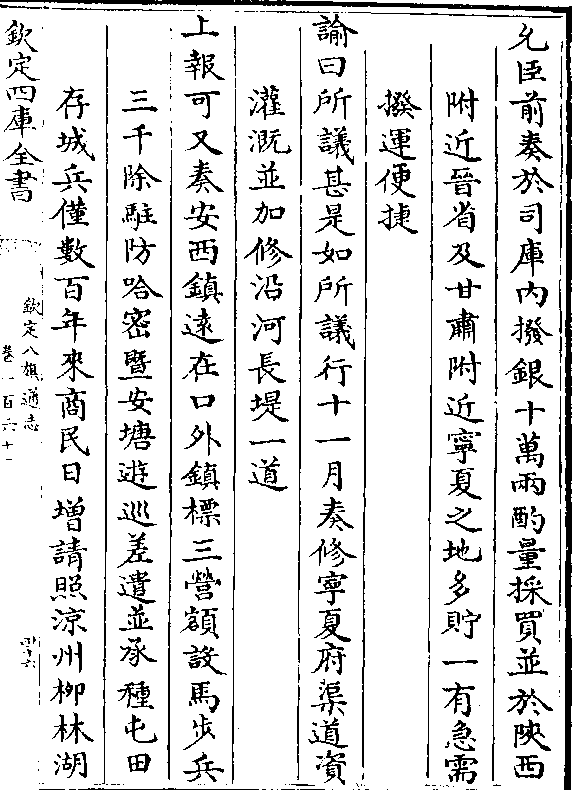 允臣前奏於司庫內撥銀十萬兩酌量採買並於陝西
附近晉省及甘肅附近寧夏之地多貯一有急需
撥運便捷
諭曰所議甚是如所議行十一月奏修寧夏府渠道資
灌溉並加修沿河長堤一道
上報可又奏安西鎮遠在口外鎮標三營額設馬步兵
三千除駐防哈密暨安塘遊巡差遣並承種屯田
存城兵僅數百年來商民日增請照涼州柳林湖
欽定四庫全書
欽定八旗通志
卷一百六十一